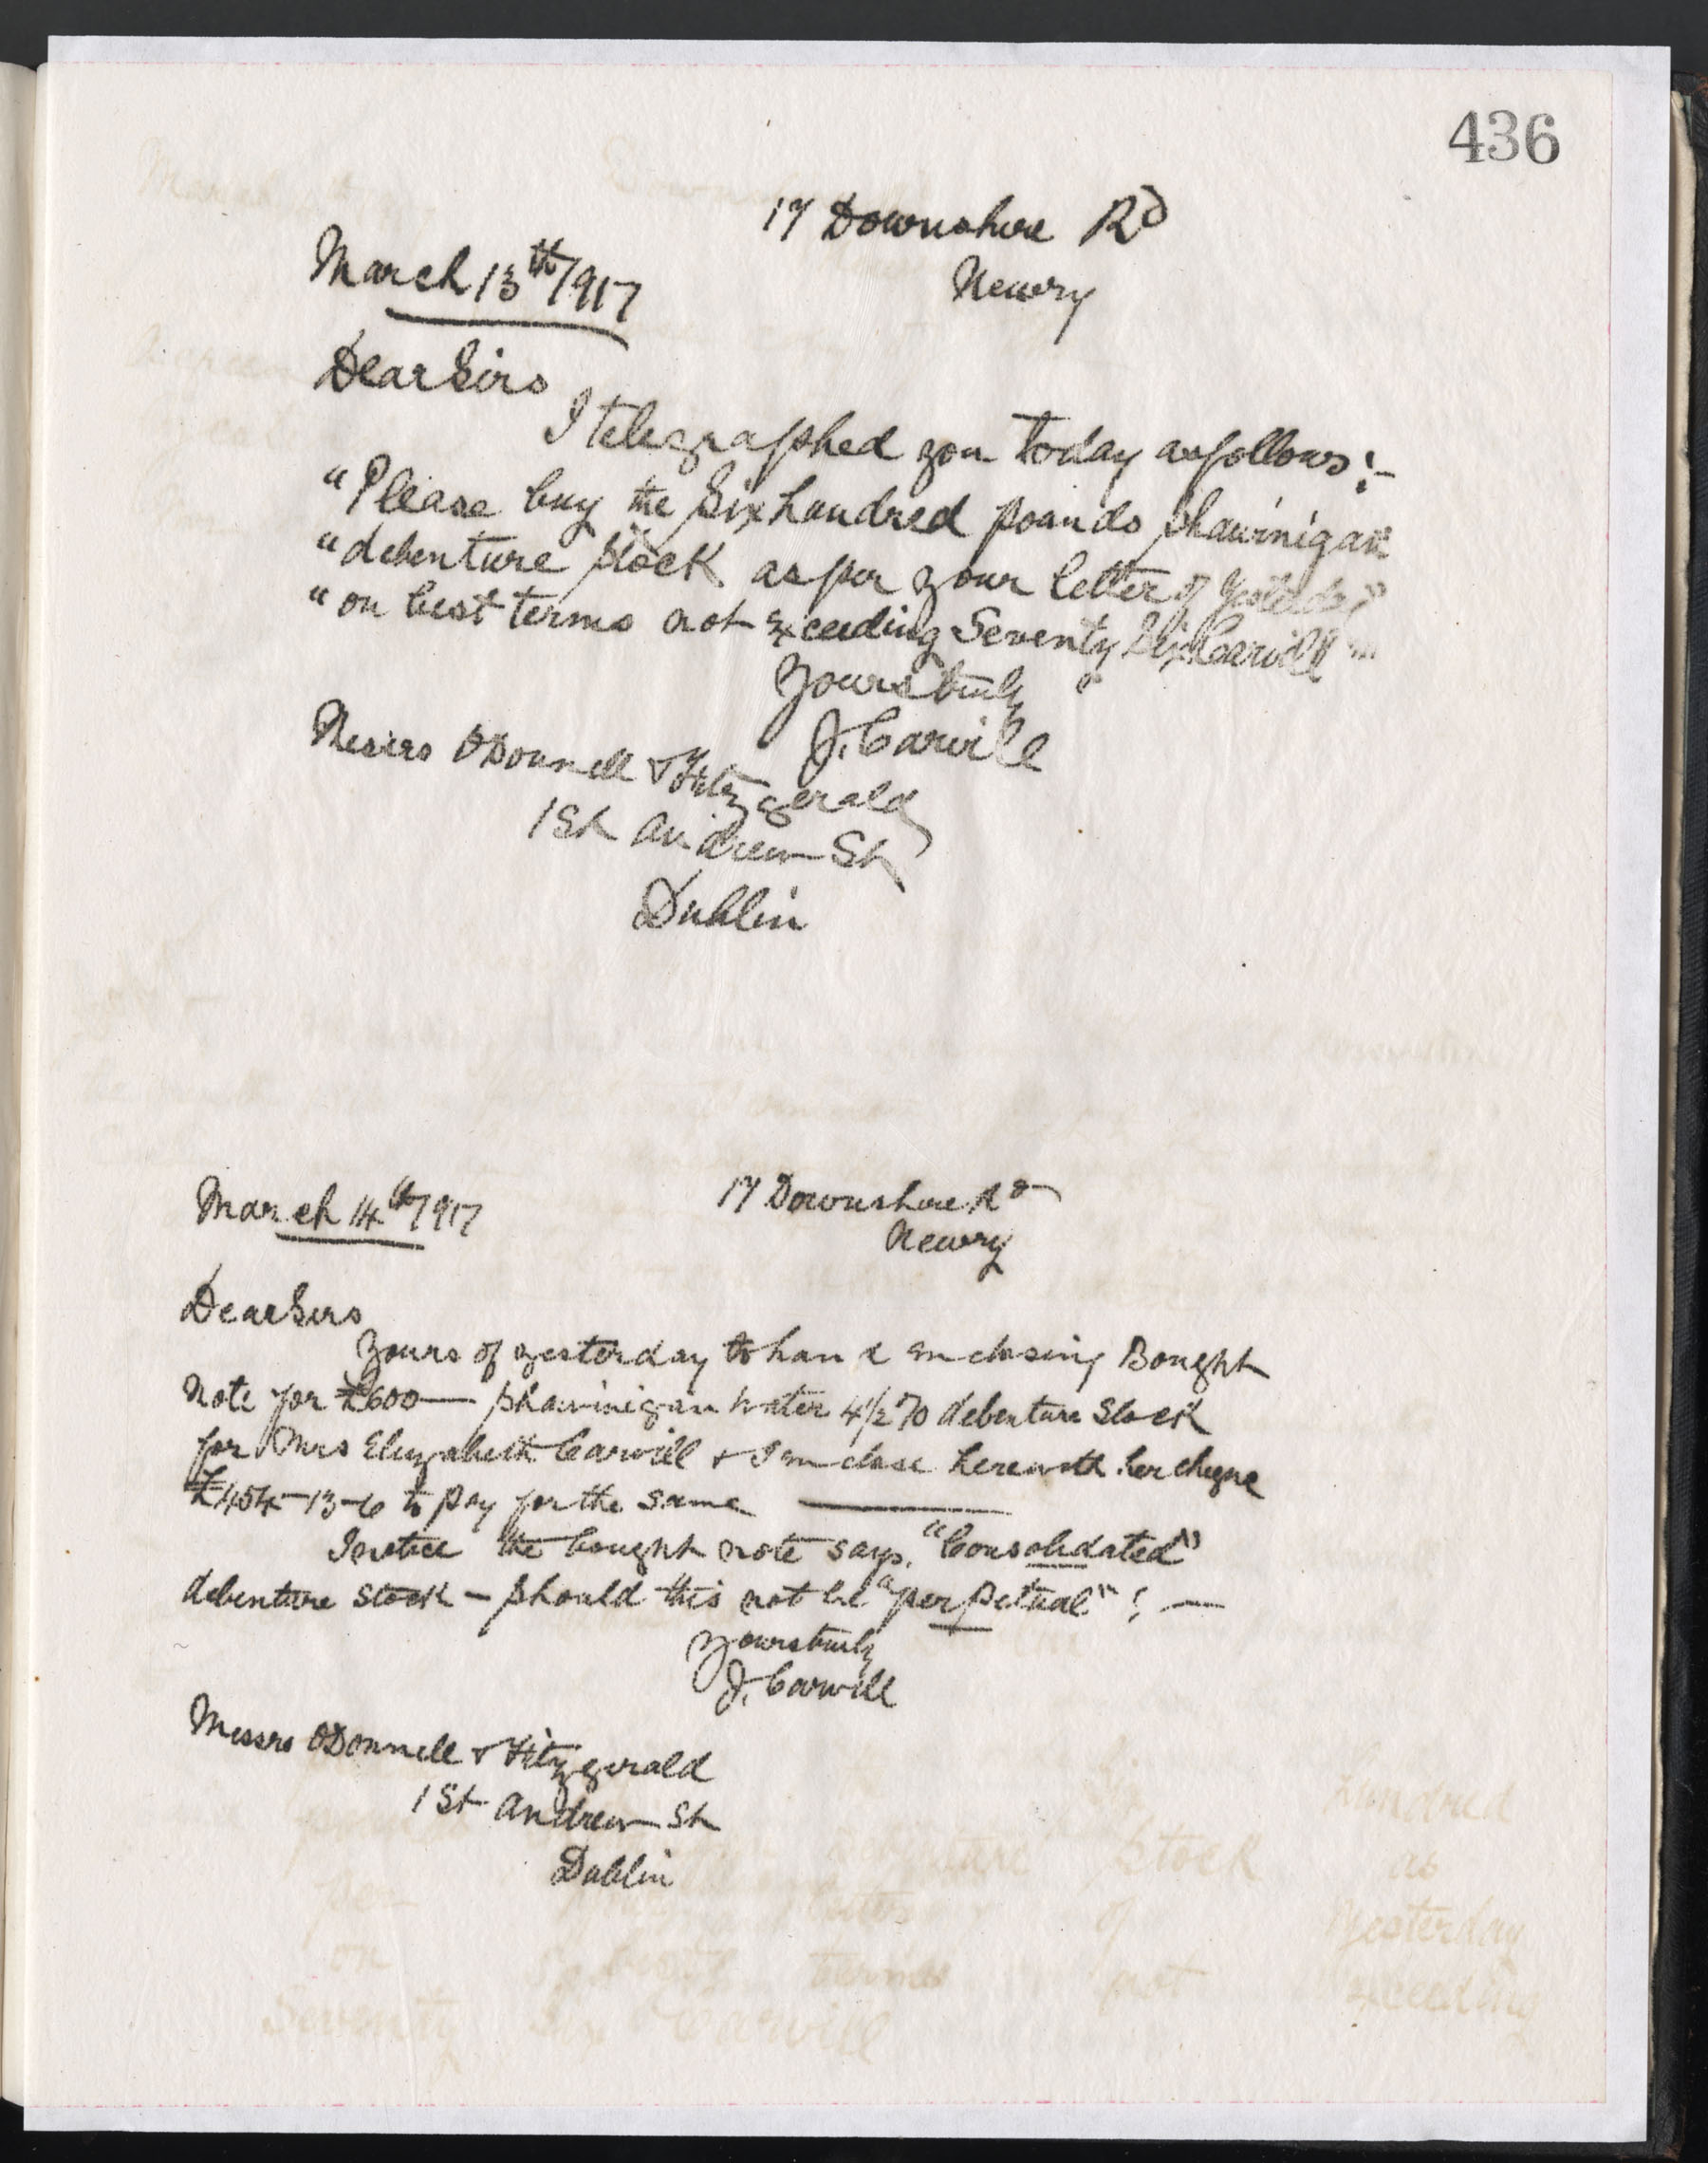 436
17 Downshire Rd
Newry
March 13th 1917
Dear Sirs
I telegraphed you today as follows:-
"Please buy the Six hundred pounds Shawinigan
"debenture stock as per your letter of yesterday
"on best terms not exceeding Seventy Six Carvill"
Yours truly
J. Carvill
Messrs O'Donnell & Fitzgerald
1 St Andrew St
Dublin
March 14th 1917
17 Downshire Rd
Newry
Dear Sirs
Yours of yesterday to hand enclosing Bought
Note for £600 — Shawinigan Water 4½% debenture Stock
for Mrs Elizabeth Carvill & I enclose herewith her cheque
£454-13-6 to pay for the same —
I notice the bought note says "Consolidated"
debenture stock - should this not be "perpetual"? —
Yours truly
J. Carvill
Messrs O'Donnell & Fitzgerald
1 St Andrew St
Dublin